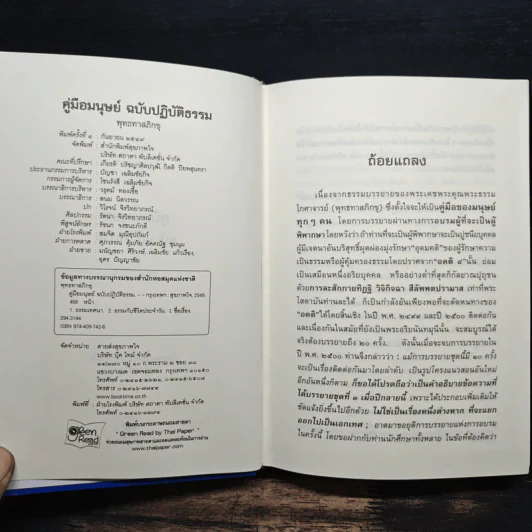 คู่มือมนุษย์ ฉบับปฏิบัติธรรม
พุทธทาสภิกขุ
พิมพ์ครั้งที่ ๑ : กันยายน ๒๕๔๙
จัดพิมพ์ : สำนักพิมพ์สุขภาพใจ
บริษัท ตถาตา พับลิเคชั่น จำกัด
คณะที่ปรึกษา : เกียรติ ปรัชญาศิลปวุฒิ กิตติ ปิยพสุนทรา
ประธานกรรมการบริหาร : บัญชา เฉลิมชัยกิจ
กรรมการผู้จัดการ : โชนรังสี เฉลิมชัยกิจ
บรรณาธิการบริหาร : วรุตม์ ทองเชื้อ
บรรณาธิการ : ถนอม
ปก : วิโรจน์ จิรวิทยาภรณ์
ศิลปกรรม : รัตนา จิรวิทยาภรณ์
พิสูจน์อักษร : รัชนก
ฝ่ายโรงพิมพ์ : สมจิต
ฝ่ายการตลาด : ศุภวรรณ คุ้มภัย อัศดณัฐ ชุ่มนุม
ฝ่ายขาย : มณัญชยา เฉลิมชัย แก้วเรือง
ยุดร บัญญาชัย
ข้อมูลทางบรรณานุกรมของสำนักหอสมุดแห่งชาติ
พุทธทาสภิกขุ
คู่มือมนุษย์ ฉบับปฏิบัติธรรม. -- กรุงเทพฯ :สุขภาพใจ, 2549
หน้า
1. ธรรมเทศนา. 2. ธรรมกับชีวิตประจำวัน I. ชื่อเรื่อง.
294.3144
ISBN 974-409-742-6
จัดจำหน่าย : สายส่งสุขภาพใจ
บริษัท บุ๊ค ไทม์ จำกัด
ถ.พระราม ๒ ซอย ๓๘
แขวงบางมด เขตจอมทอง กรุงเทพฯ ๑๐๑๕๐
โทรศัพท์
โทรสาร
www.booktime.co.th
พิมพ์ที่ : ฝ่ายโรงพิมพ์ บริษัท ตถาตา พับลิเคชั่น จำกัด
โทรศัพท์
Green Read
พิมพ์บนกระดาษถนอมสายตา
" Green Read by Thai Paper "
ช่วยถนอมสุขภาพสายตาและลดแสงสะท้อนในการอ่าน
www.thaipaper.com
ถ้อยแถลง
เนื่องจากธรรมบรรยายของพระเดชพระคุณพระธรรม
โกศาจารย์ (พุทธทาสภิกขุ) ซึ่งตั้งใจจะให้เป็นคู่มือของมนุษย์
ทุกๆ คน โดยการบรรยายผ่านทางการอบรมผู้ที่จะเป็นผู้
พิพากษา โดยหวังว่า ถ้าท่านที่จะเป็นผู้พิพากษาจะเป็นปูชนียบุคคล
ผู้มีเจตนาอันบริสุทธิ์ผุดผ่องมุ่งรักษา “อุดมคติ” ของผู้รักษาความ
เป็นธรรมหรือผู้คุ้มครองธรรมโดยปราศจาก “อคติ ๔” นั้น ย่อม
เป็นเสมือนหนึ่งอริยบุคคล หรืออย่างต่ำที่สุดก็กัลยาณปุถุชน
ด้วยการละสักกายทิฏฐิ วิจิกิจฉา สีลัพพตปรามาส เท่าที่พระ
โสดาบันท่านละได้ ก็เป็นกำลังอันเพียงพอที่จะตัดหนทางของ
“อคติ” ได้โดยสิ้นเชิง ในปี พ.ศ. ๒๔๙๙ และปี ๒๕๐๐ ติดต่อกัน
และเนื่องกันในสมัยที่ยังเป็นพระอริยนันทมุนีนั้น จะสมบูรณ์ได้
จริงต้องบรรยายถึง ๒๐ ครั้ง. ดังนั้นเมื่อจะจบการบรรยายใน
ปี พ.ศ. ๒๕๐๐ ท่านจึงกล่าวว่า : แม้การบรรยายชุดนี้มี ๑๐ ครั้ง
จะเป็นเรื่องติดต่อกันมาโดยลำดับ เป็นรูปโครงแนวสอนอันใหม่
อีกอันหนึ่งก็ตาม ก็ขอให้โปรดถือว่าเป็นคำอธิบายข้อความที่
ได้บรรยายชุดที่ ๑ เมื่อปีกลายนี้ เพราะได้ประกอบเพิ่มเติมให้
ชัดแจ้งยิ่งขึ้นไปอีกด้วย ไม่ใช่เป็นเรื่องหนึ่งต่างหาก ที่จะแยก
ออกไปเป็นเอกเทศ ; อาตมาขอยุติการบรรยายแห่งการอบรม
ในครั้งนี้ โดยขอฝากกับท่านนักศึกษาทั้งหลาย ในข้อที่ต้องคิดว่า